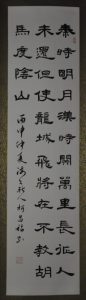 秦時明月漢時關萬里長征人
未還但使龍城飛將在不教胡
馬度陰山
丙申仲夏